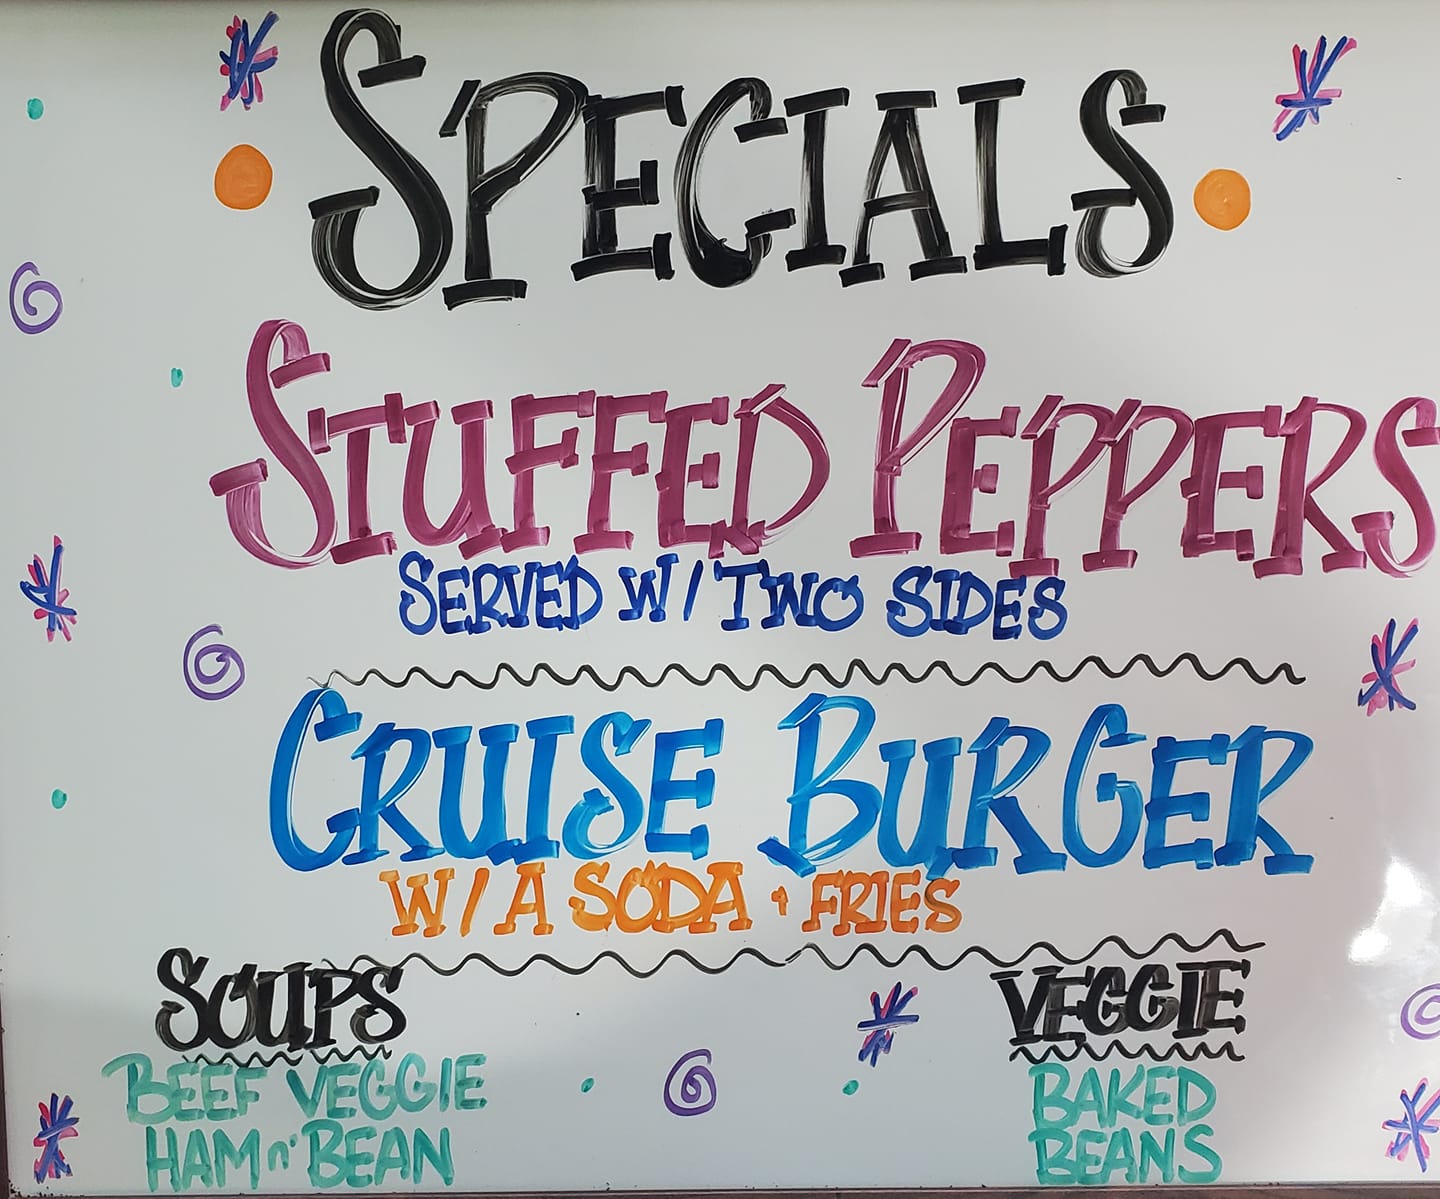 SPECIALS
STUFFED PEPPERS
SERVED W/ TWO SIDES
CRUISE BURGER
W/ A SODA + FRIES
SOUPS
BEEF VEGGIE
HAM n' BEAN
VEGGIE
BAKED
BEANS